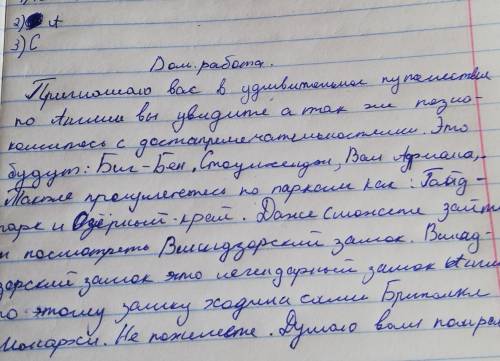 2) A
3) С
Дом. работа.
Приглошаю вас в удивительное путешествие
по Англии вы увидите а так же позно-
комитесь с достапримечательностями. Это
будут: Биг-Бен, Стоунхендж, Вал Адриана,
Также прогуляетесь по паркам как: Гайд-
парк и Озёрный-край. Даже сможете зайти
и посмотреть Виндзорский замок. Винд-
зорский замок это легендарный замок Англии
по этому замку ходили сами Британские
Монархи. Не пожелеете. Думаю вам понрав